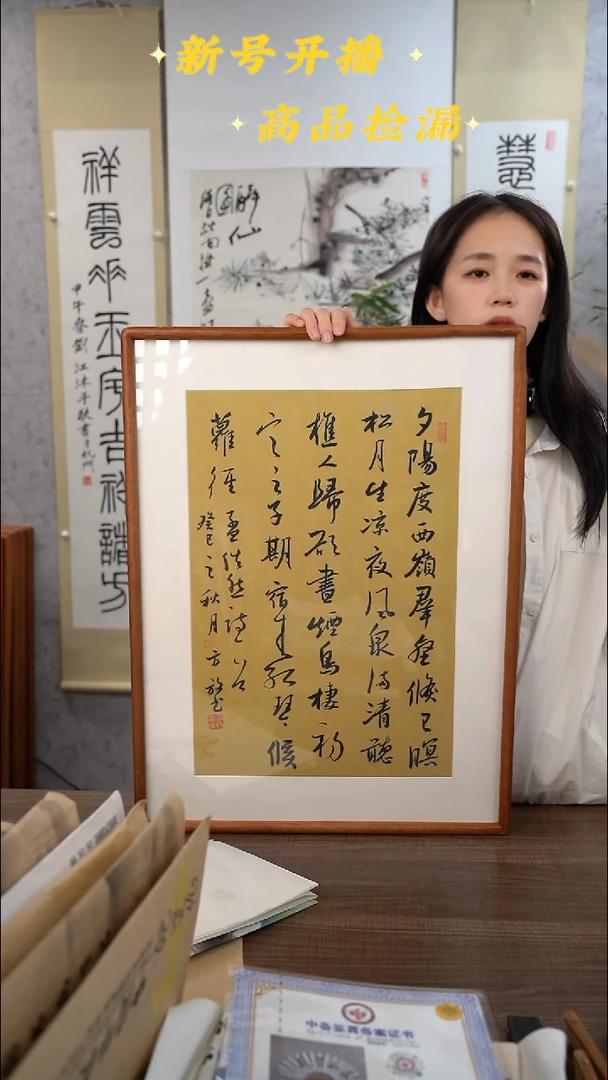 新号开播
高品捡漏
夕陽度西嶺羣壑倏已暝
松月生涼夜風泉滿清聽
樵人歸欲盡煙鳥棲初
定之子期宿來孤琴候
蘿徑孟浩然詩
癸巳之秋月
祥雲
甲午春劉江沐手敬書于杭州
醉仙圖
慧
中备鉴真备案证书